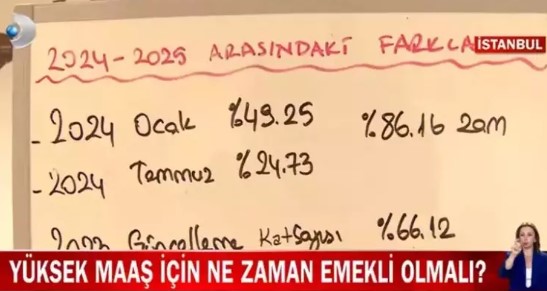 2024-2025 ARASINDAKİ FARKLA
İSTANBUL
-2024 Ocak %49.25 %86.16 zam
-2024 Temmuz %24.73
2023 Güncelleme Katsayısı %66.12
YÜKSEK MAAŞ İÇİN NE ZAMAN EMEKLİ OLMALI?